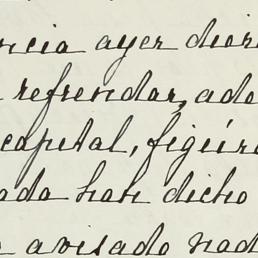 ncia ayer dier
refrendar, ado
capital, figúr
ada han dicho
avisado nad